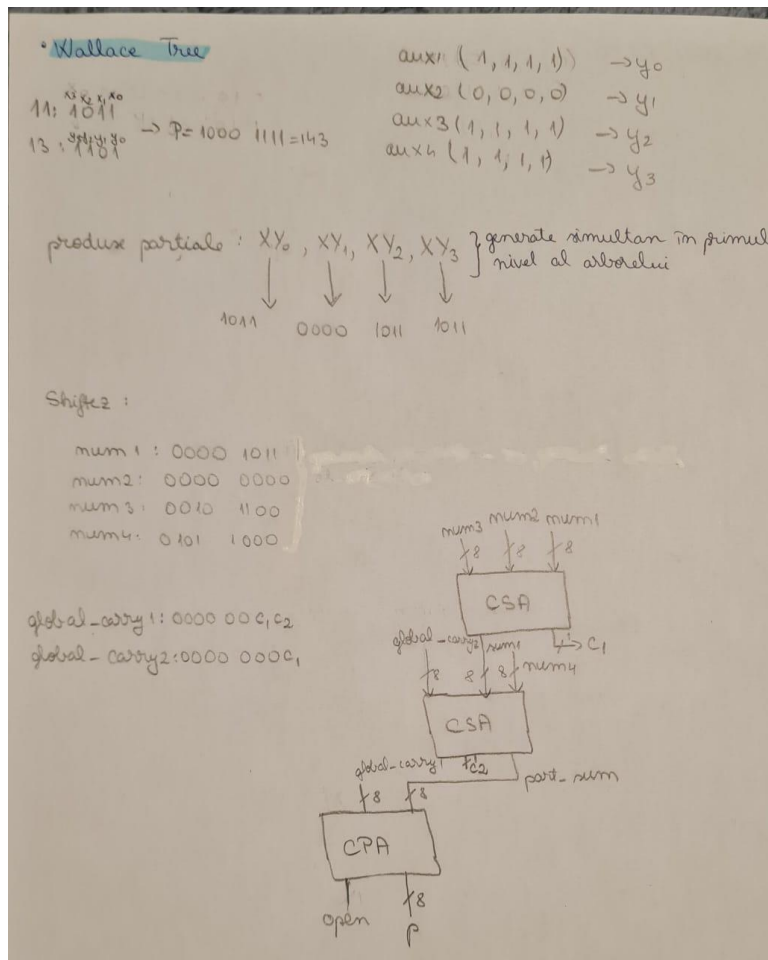 • Wallace Tree
x3 x2 x1 x0
11: 1011
y3 y2 y1 y0
13: 1101 → P= 1000 1111=143
aux1 (1,1,1,1) → y0
aux2 (0,0,0,0) → y1
aux3 (1,1,1,1) → y2
aux4 (1,1,1,1) → y3
produse parțiale : XY0 , XY1, XY2, XY3 } generate simultan în primul
nivel al arborelui
1011 0000 1011 1011
Shiftez :
num1 : 0000 1011
num2: 0000 0000
num3: 0010 1100
num4: 0101 1000
global_carry1: 0000 00 C1C2
global_carry2: 0000 000C1
num3 num2 num1
8 8 8
CSA
global_carry2 num1 1 → C1
8 8 8 num4
CSA
global_carry1 1 C2 part_sum
8 8
CPA
8
open P